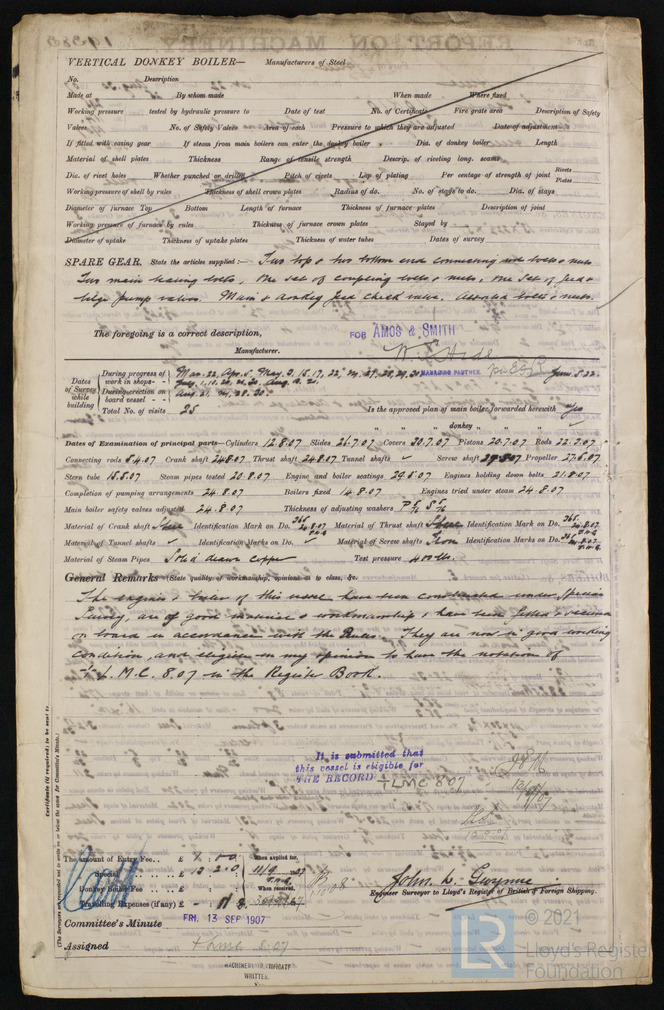 VERTICAL DONKEY BOILER— Manufacturers of Steel
No. Description
Made at By whom made When made Where fixed
Working pressure tested by hydraulic pressure to Date of test No. of Certificate Fire grate area Description of Safety
Valves No. of Safety Valves Area of each Pressure to which they are adjusted Date of adjustment
If fitted with easing gear If steam from main boilers can enter the donkey boiler Dia. of donkey boiler Length
Material of shell plates Thickness Range of tensile strength Descrip. of riveting long. seams
Dia. of rivet holes Whether punched or drilled Pitch of rivets Lap of plating Per centage of strength of joint Rivets Plates
Working pressure of shell by rules Thickness of shell crown plates Radius of do. No. of stays to do. Dia. of stays
Diameter of furnace Top Bottom Length of furnace Thickness of furnace plates Description of joint
Working pressure of furnace by rules Thickness of furnace crown plates Stayed by
Diameter of uptake Thickness of uptake plates Thickness of water tubes Dates of survey
SPARE GEAR. State the articles supplied:— Two top & two bottom end connecting rod bolts & nuts
Two main bearing bolts, One set of coupling bolts & nuts, one set of feed &
bilge pump valves. Main & donkey feed check valve. Assorted bolts & nuts.
The foregoing is a correct description,
FOR AMOS & SMITH
Manufacturer.
MANAGING PARTNER.
Dates of Survey while building
During progress of work in shops - - Mar. 22, Apr. 5, May. 3, 15, 17, 22,
During erection on board vessel - - Aug. 21, 24, 28. 30
Total No. of visits 25
Is the approved plan of main boiler forwarded herewith Yes
" " " donkey " " "
Dates of Examination of principal parts—Cylinders 12.8.07 Slides 26.7.07 Covers 20.7.07 Pistons 20.7.07 Rods 22.7.07
Connecting rods 5.4.07 Crank shaft 24.8.07 Thrust shaft 24.8.07 Tunnel shafts ✓ Screw shaft Propeller 27.6.07
Stern tube 15.5.07 Steam pipes tested 20.8.07 Engine and boiler seatings 29.5.07 Engines holding down bolts 21.8.07
Completion of pumping arrangements 24.8.07 Boilers fixed 14.8.07 Engines tried under steam 24.8.07
Main boiler safety valves adjusted 24.8.07 Thickness of adjusting washers
Material of Crank shaft Steel Identification Mark on Do. Material of Thrust shaft Steel Identification Mark on Do.
Material of Tunnel shafts ✓ Identification Marks on Do. ✓ Material of Screw shafts Iron Identification Marks on Do.
Material of Steam Pipes Solid drawn copper Test pressure 400 lbs.
General Remarks (State quality of workmanship, opinions as to class, &c.
The engines & boiler of this vessel have been constructed under Special
Survey, are of good material & workmanship & have been fitted & secured
on board in accordance with the Rules. They are now in good working
condition, and eligible in my opinion to have the notation of
L.M.C. 8.07 in the Register Book.
Certificate (if required) to be sent to
(The Surveyors are requested not to write on or below the space for Committee's Minute.)
It is submitted that
this vessel is eligible for
THE RECORD + LMC 8.07
The amount of Entry Fee.. £ When applied for,
Special .. £ 13. 2. 0. 11/9 1907
Donkey Boiler Fee .. £ When received,
Travelling Expenses (if any) £
John. L. Gwynne
Engineer Surveyor to Lloyd's Register of British & Foreign Shipping.
Committee's Minute FRI. 13 SEP 1907
Assigned + LMC 8.07
MACHINERY CERTIFICATE
WRITTEN.
LR
© 2021
Lloyd's Register
Foundation